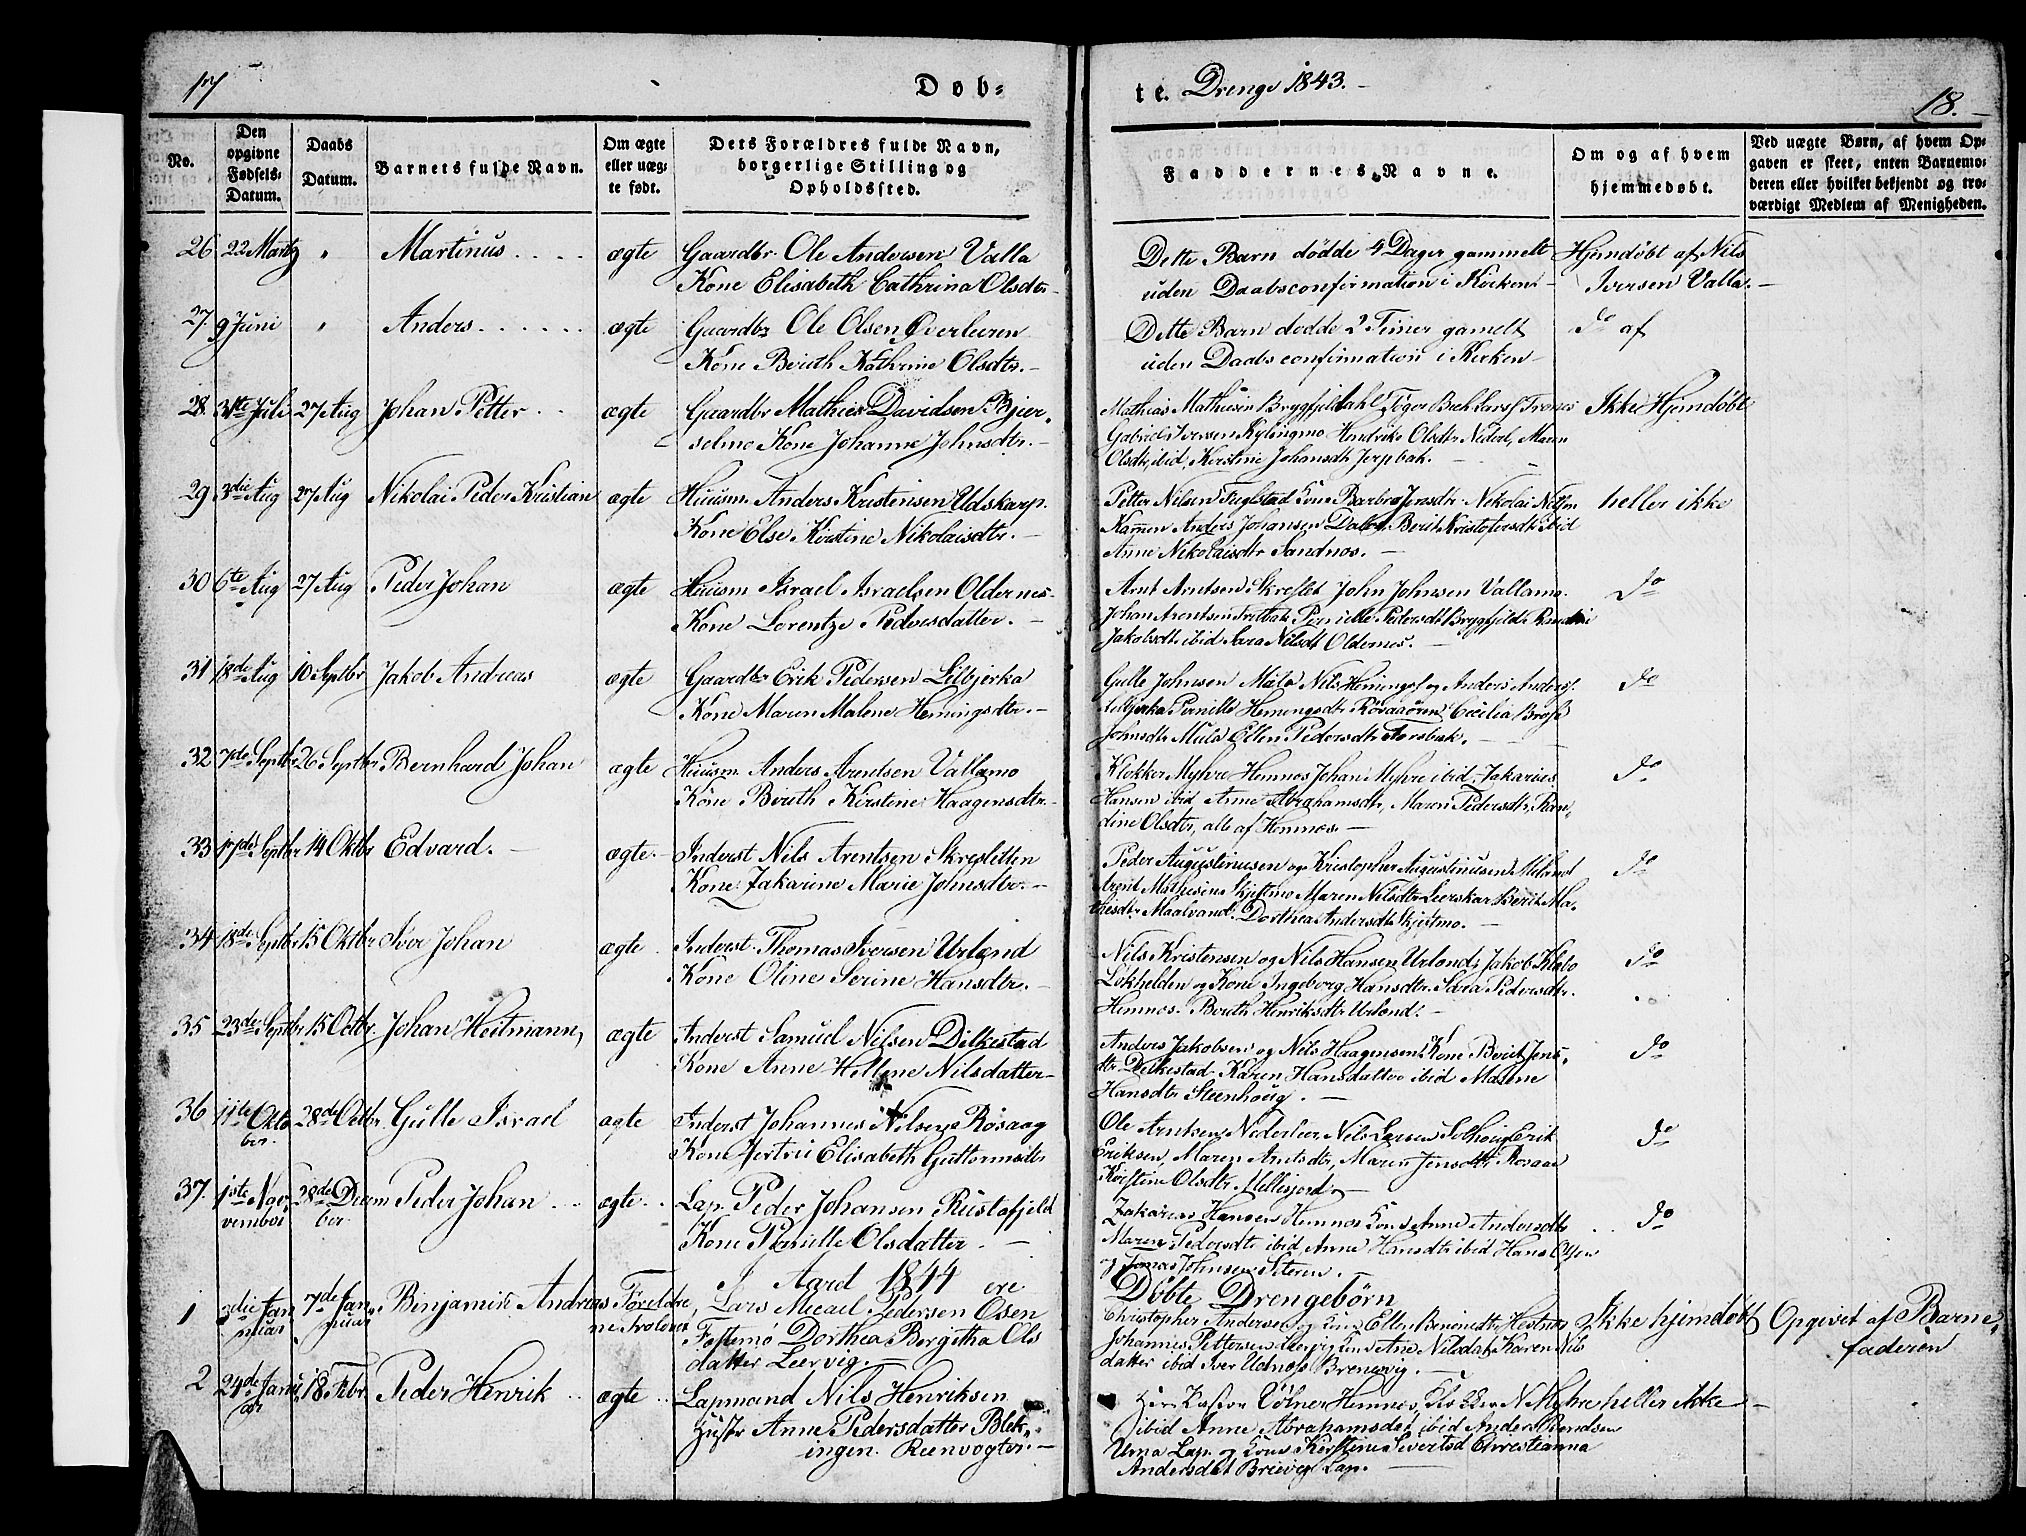 17
Döb-
te. Drenge 1843.-
18.-
No.
Den opgivne Fødsels-Datum.
Daabs Datum.
Barnets fulde Navn.
Om ægte eller uægte født.
Dets Forældres fulde Navn, borgerlige Stilling og Opholdssted.
Faddernes Navne.
Om og af hvem hjemmedøbt.
Ved uægte Børn, af hvem Opgaven er skeet, enten Barnemoderen eller hvilket bekjendt og troværdigt Medlem af Menigheden.
26 22 Martz " Martinus.... ægte Gaardbr. Ole Andersen Valla
Kone Elisabeth Cathrina Olsdtr.
Dette Barn dödde 4 Dager gammelt
uden Daabsconfirmation i Kirken.
Hjemdöbt af Nils
Iversen Valla.-
27. 9 Juni " Anders...... ægte Gaardbr Ole Olsen Overleeren
Kone Berith Kathrine Olsdtr.-
Dette Barn dødde 2 Timer gamelt
uden Daabsconfirmation i Kirken
do af
28. 31te Juli 27 Aug Johan Petter.. ægte Gaardbr Mathias Davidsen Bjer-
selmo Kone Johanne Johnsdtr.-
Mathias Mathisen Brygfjeldahl
Gabriel Iversen Kylingmo Hendrike Olsdtr Nederl, Maren
Olsdtr, ibid, Kirstine Johansdtr Jerpbak.
Ikke Hjemdöbt
29 3die Aug 27 Aug Nikolai Peder Kristian ægte Huusm. Anders Kristensen Udskarp.
Kone Else Kirstine Nikolaisdtr.-
Petter Nilsen Fuglstad Kone Barbro Jensdtr. Nikolai
Anders Johansen Dalos. Berit Kristofersdtr ibid
Anne Nikolaisdtr Sandnos.-
heller ikke
30 6te Aug 27 Aug Peder Johan ægte Huusm Israel Israelsen Oldernes
Kone Lorentze Pedersdatter.-
Arnt Arntsen Skreslet John Johnsen Vallamo.
Johan Arentsen Pernille Pedersdtr Brygfjeld
Jakobsdtr ibid Sara Nilsdtr Oldernes.-
do
31 18de Aug 10 Septbr Jakob Andreas ægte Gaardbr Erik Pedersen Lilbjerka
Kone Maren Malene Hemingsdtr.-
Gulle Johnsen Mula Nils Hemings. og Anders Anders.
Lilbjerka Pernille Hemingsdtr Rösaaören Cecilia
Johnsdtr Mula Ellen Pedersdtr Forsbak.
do
32 7de Septbr 26 Septbr Bernhard Johan ægte Huusm. Anders Arentsen Vallamo
Kone Berith Kirstine Haagensdtr.
Klokker Myhre Hemnes Johan Myhre ibid. Zakarius
Hansen ibid Anne Abrahamsdtr, Maren Pedersdtr,
dine Olsdtr, alle af Hemnes.-
do
33 17de Septbr 14 Oktbr Edvard.- ægte.- Inderst Nils Arentsen Skresletten
Kone Zakarine Marie Johnsdtr.-
Peder Augustinusen og Kristopher Augustinusen Meland
Arent Mathisen Skjetmo Maren Nilsdtr Leerskar Berit Ma-
thisdtr Maalvand. Dorthea Andersdtr Skjetmo.-
do
34 18de Septbr 15 Oktbr Iver Johan ægte. Inderst. Thomas Iversen Urland
Kone Oline Serine Hansdtr.-
Nils Kristensen og Nils Hansen Urland, Jakob Klebo
Lökhelden og Kone Ingeborg Hansdtr. Sara Pedersdtr.
Hemnes. Berith Henriksdtr Urland.-
do
35 23de Septbr 15 Octbr. Johan Heitmann, ægte Inderst Samuel Nilsen Dilkestad
Kone Anne Hellene Nilsdatter-
Anders Jakobsen og Nils Haagensens Kone Berit Jens-
dtr. Dilkestad. Karen Hansdatter ibid Malene
Hansdtr Steenhoug.-
do
36 11te Okto
ber. 28de Octbr Gulle Israel ægte Inderst Johannes Nilsen Rösaag
Kone Jertrü Elisabeth Guttormsdtr
Ole Arntsen Nederleer Nils Larsen Erik
Eriksen, Maren Arntsdtr, Maren Jensdtr. Rosaae
Kirstine Olsdtr. Mellesjord.-
do
37. 1ste No-
vember 28de Decem
ber Peder Johan... ægte.. Lap. Peder Johansen Rustafjeld
Kone Pernille Olsdatter.-
Zakarias Hansen Hemnes Kone Anne Andersdtr
Maren Pedersdtr ibid Anne Hansdtr ibid Hans Olsen
og Jonas Johnsen
do
I Aard 1844 ere
Döbte Drengebörn
1 3die Jan
nuar 7de Jan
nuar Benjamin Andreas Foreldre
ne Trolovet Lars Micael Pedersen Osen
Fostemo Dorthea Bergitha Ols
datter Leervig.-
Christopher Andersen og Kone Ellen Hestnes
Johannes Pettersen Leervig Kone Ane Nilsdat. Karen Nils
datter ibid Iver Brenevig.-
Ikke hjemdöbt
Opgivet af Barne-
faderen
2 24de Janu
ar 18 Febr. Peder Henrik.. ægte.. Lapmand Nils Henriksen
Hustr Anne Pedersdatter Blek-
ingen. Reenvogter.-
Herr Pastor Hemnes, N. Myhre
ibid Anne Abrahamsdat. ibid Anders Bendsen
Urna Lap. og Kone Kirstine Sivertsd Christianna
Andersdat Brievig Lap.
heller ikke-